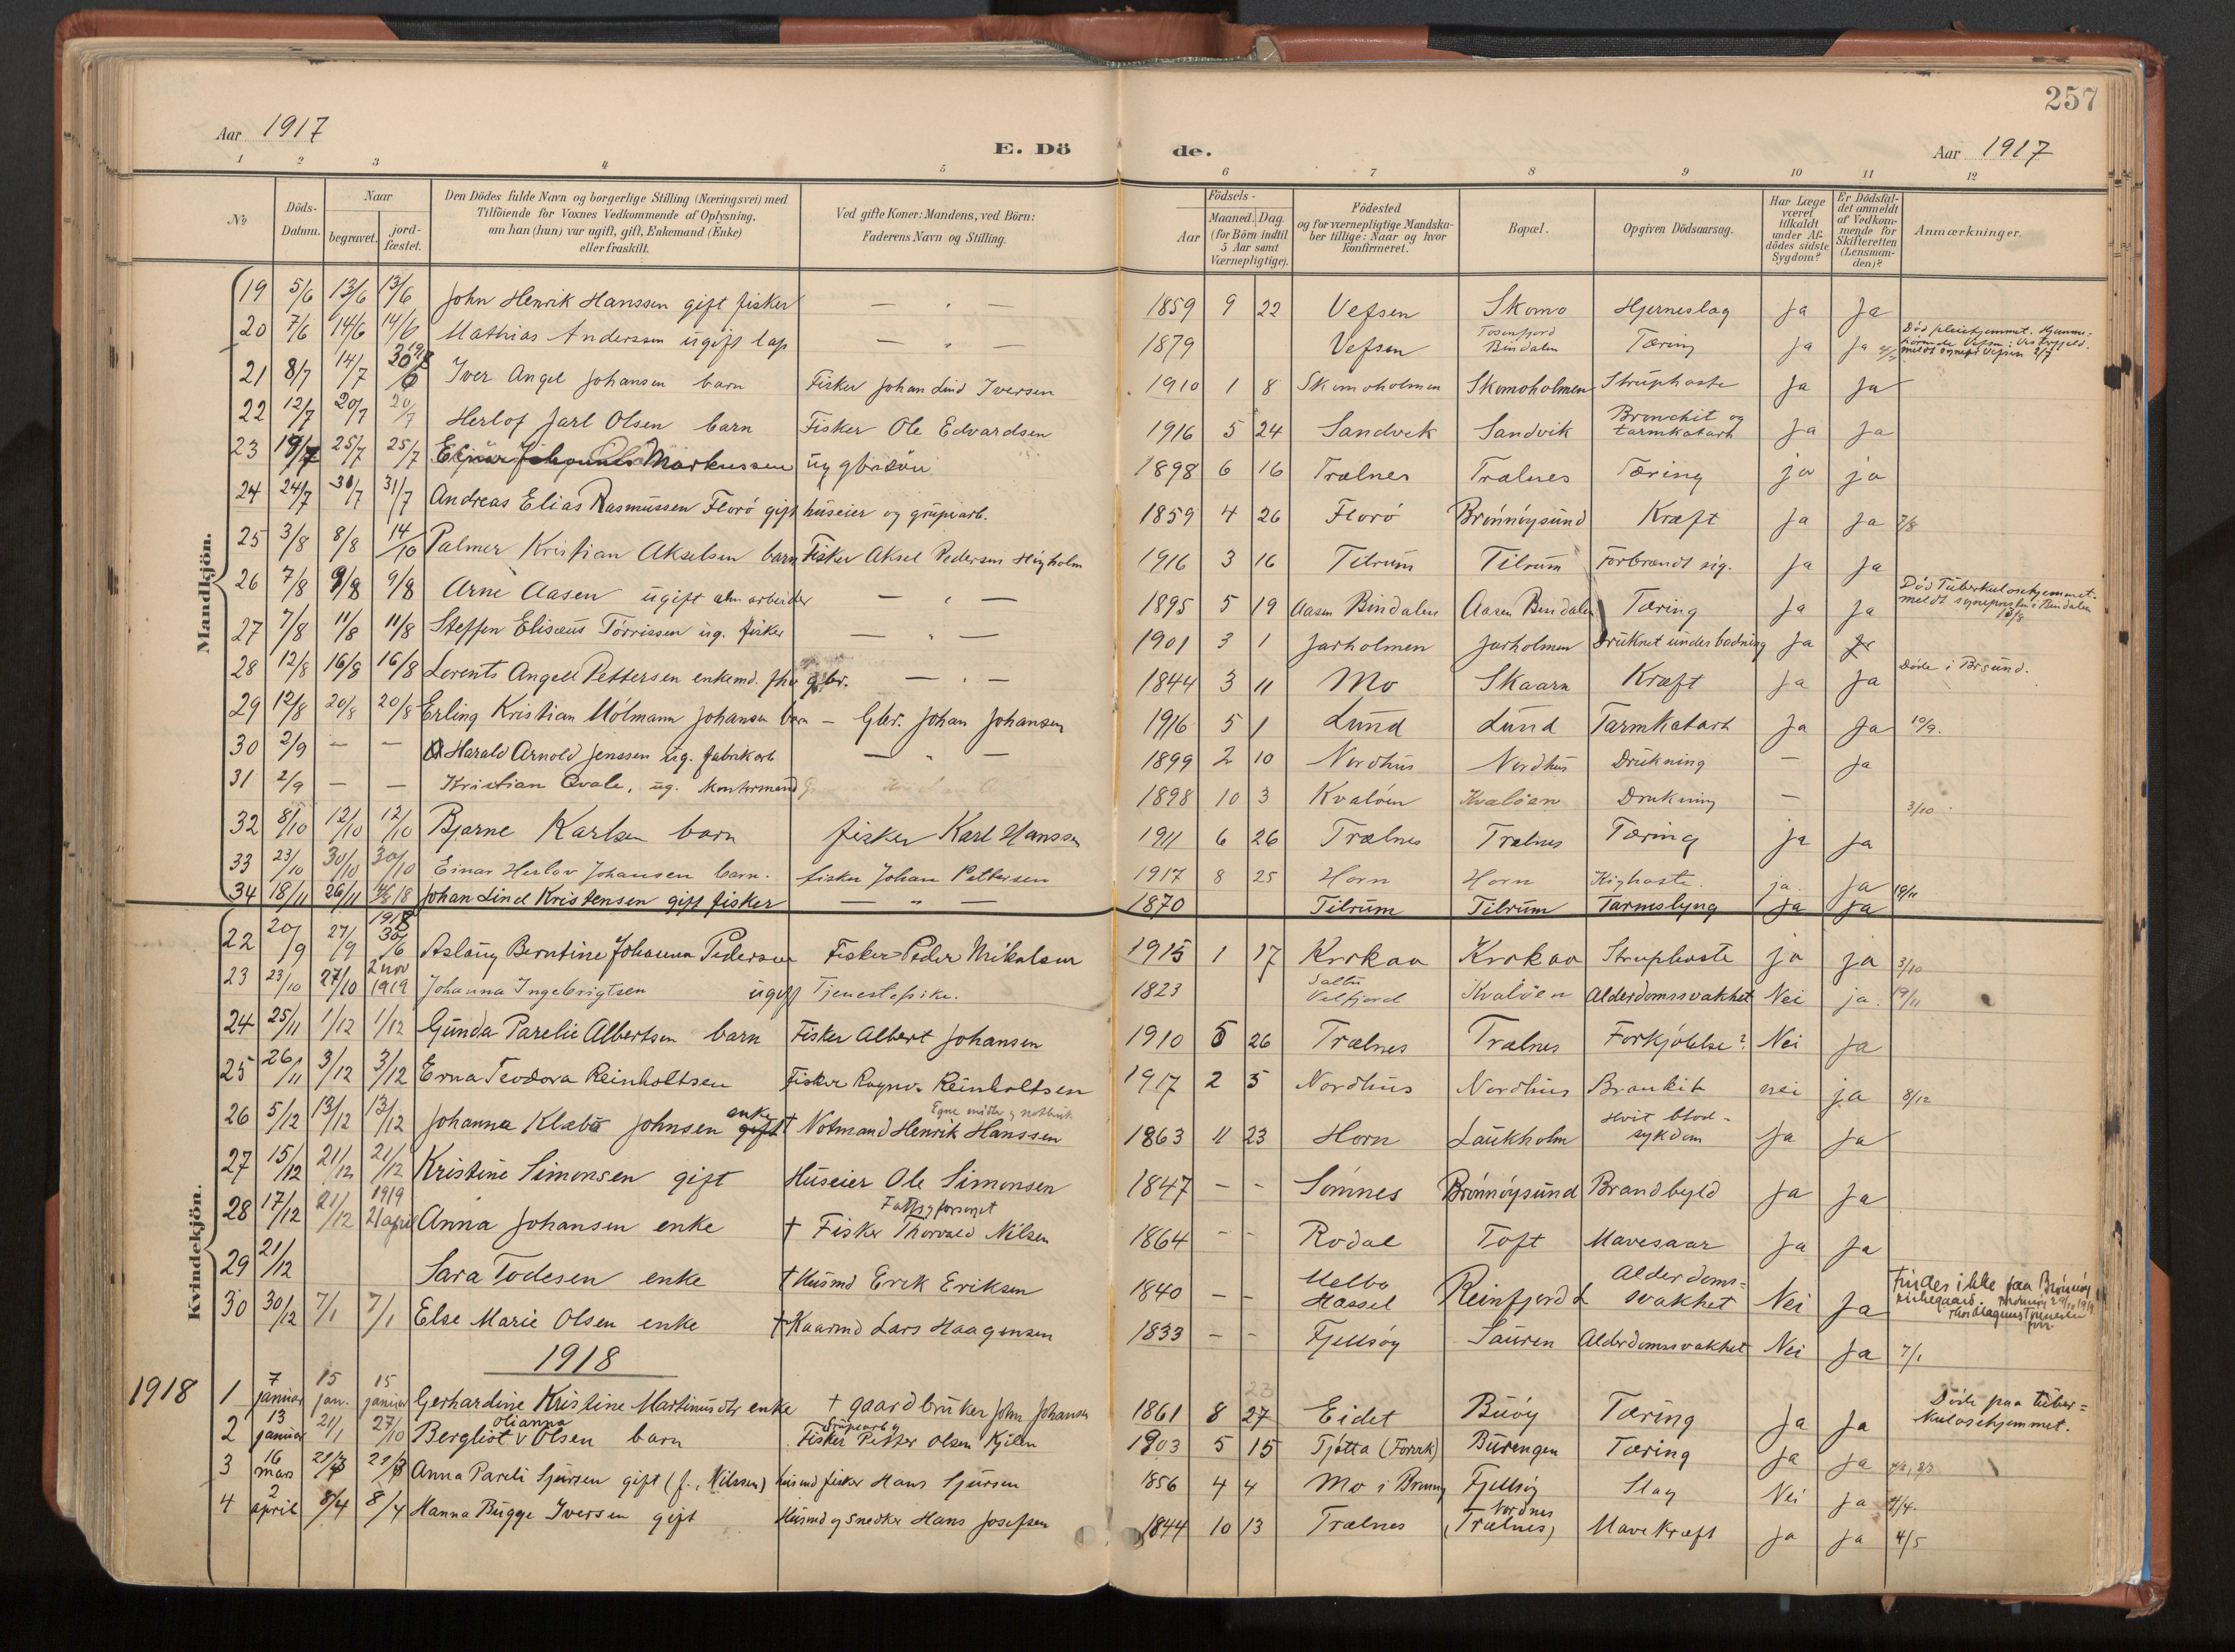 257
Aar 1917
E. Dö
de.
Aar 1917
1 2 3 4 5 6 7 8 9 10 11 12
№
Döds-Datum.
Naar
begravet.
jord-fæstet.
Den Dödes fulde Navn og borgerlige Stilling (Næringsvei) med
Tilföiende for Voxnes Vedkommende af Oplysning,
om han (hun) var ugift, gift, Enkemand (Enke)
eller fraskilt.
Ved gifte Koner: Mandens, ved Börn:
Faderens Navn og Stilling.
Födsels-
Aar
Maaned. Dag.
(for Börn indtil
5 Aar samt
Værnepligtige).
Födested
og for værnepligtige Mandska-
ber tillige: Naar og hvor
konfirmeret.
Bopæl.
Opgiven Dödsaarsag.
Har Læge
været
tilkaldt
under Af-
dödes sidste
Sygdom?
Er Dödsfal-
det anmeldt
af Vedkom-
mende for
Skifteretten
(Lensman-
den)?
Anmærkninger.
Mandkjön.
19 5/6 13/6 13/6 John Henrik Hanssen gift fisker — " — 1859 9 22 Vefsen Skomo Hjerneslag Ja Ja
20 7/6 14/6 14/6 Mathias Anderssen ugift lap — " — 1879 Vefsen Tosenfjord Bindalen Tæring Ja Ja
21 8/7 14/7 Iver Angel Johansen barn Fisker Johan Lind Iversen 1910 1 8 Skomoholmen Skomoholmen Struphoste Ja Ja
22 12/7 20/7 20/7 Herlof Jarl Olsen barn Fisker Ole Edvardsen 1916 5 24 Sandvik Sandvik Bronchit og tarmkatarh Ja Ja
23 19/7 25/7 25/7 Markussen ug gbr.søn 1898 6 16 Trælnes Trælnes Tæring ja ja
24 24/7 31/7 31/7 Andreas Elias Rasmussen Florö gift huseier og grubearb. 1859 4 26 Florö Brönnöysund Kræft Ja Ja 7/8
25 3/8 8/8 14/10 Palmer Kristian Akselsen barn Fisker Aksel Pedersen 1916 3 16 Tilrum Tilrum Forbrændt sig. Ja Ja
26 7/8 9/8 9/8 Arne Aasen ugift alm arbeider — " — 1895 5 19 Aasen Bindalen Aasen Bindalen Tæring Ja Ja Död Tüberkulosehjemmet.
27 7/8 11/8 11/8 Steffen Elisæus Törrissen ug. fisker — " — 1901 3 1 Jarholmen Jarholmen Druknet under badning Ja Ja
28 12/8 16/8 16/8 Lorents Angell Pettersen enkemd. fhv gbr. — " — 1844 3 11 Mo Skaarn Kræft Ja Ja Döde i Brsund.
29 12/8 20/8 20/8 Erling Kristian Mölmann Johansen barn — Gbr. Johan Johansen 1916 5 1 Lund Lund Tarmkatarh Ja Ja 10/9.
30 2/9 — — Harald Arnold Jenssen ug. fabrikarb — " — 1899 2 10 Nordhus Nordhus Drukning — Ja
31 2/9 — — Kristian Qvale, ug. kontormand 1898 10 3 Kvalöen Kvalöen Drukning — 3/10
32 8/10 12/10 12/10 Bjarne Karlsen barn fisker Karl Hanssen 1911 6 26 Trælnes Trælnes Tæring ja ja
33 23/10 30/10 30/10 Einar Herlov Johansen barn. fisker Johan Pettersen 1917 8 25 Horn Horn Kighoste. ja. Ja 19/11
34 18/11 26/11 Johan Lind Kristensen gift fisker — " — 1870 Tilrum Tilrum Tarmslyng Ja Ja
Kvindekjön.
22 20/9 27/9 1918 30/6 Aslaug Berntine Johanna Pedersen Fisker Peder Nikolaisen 1915 1 17 Krokaa Krokaa Struphoste ja ja 3/10
23 23/10 27/10 2 nov 1919 Johanna Ingebrigtsen ugift Tjenestepike. 1823 Velfjord Kvalöen Alderdomssvakhet Nei ja. 19/11
24 25/11 1/12 1/12 Gunda Parelie Albertsen barn Fisker Albert Johansen 1910 5 26 Trælnes Trælnes Forkjölelse? Nei Ja
25 26/11 3/12 3/12 Erna Teodora Reinholtsen Fisker Ragnv. Reinholtsen 1917 2 5 Nordhus Nordhus Brankit nei ja 8/12
26 5/12 13/12 13/12 Johanna Klabö Johnsen enke gift † Notmand Henrik Hanssen 1863 11 23 Horn Laukholm Hvit blod-sykdom Ja Ja
27 15/12 21/12 21/12 Kristine Simonsen gift Huseier Ole Simonsen 1847 - - Sömnes Brönnöysund Brandbyld Ja Ja
28 17/12 21/12 1919 21 april Anna Johansen enke Fattigforsorget † Fisker Thorvald Nilsen 1864 - - Rodal Toft Mavesaar Ja Ja
29 21/12 Sara Todesen enke † Husmd Erik Eriksen 1840 - - Melbo Hassel Reinfjord Alderdoms-svakhet Nei Ja Findes ikke paa Brönnöy kirkegaard.
30 30/12 7/1 7/1 Else Marie Olsen enke † Kaarmd Lars Haagensen 1833 - - Fjellsöy Sauren Alderdomssvakhet Nei Ja 7/1
1918
1918 1 7 januar 15 jan. 15 januar Gerhardine Kristine Martinusdtr enke † gaardbruker John Johansen 1861 8 27 Eidet Buöy Tæring Ja Ja Döde paa tüber-kulosehjemmet.
2 13 januar 21/1 27/10 Bergliot Olianna Olsen barn Grubearb og Fisker Petter Olsen Kjelen 1903 5 15 Tjötta (Forvik) Burengen Tæring Ja Ja
3 16 mars Anna Pareli Sjursen gift (f. Nilssen) husmd fisker Hans Sjursen 1856 4 4 Mo i Brønnøy Fjellsöy Slag Nei Ja
4 2 april 8/4 8/4 Hanna Bugge Iversen gift Husmd og Snedker Hans Josefsen 1844 10 13 Trælnes Nordnes (Trælnes) Mavekræft Ja Ja 4/5